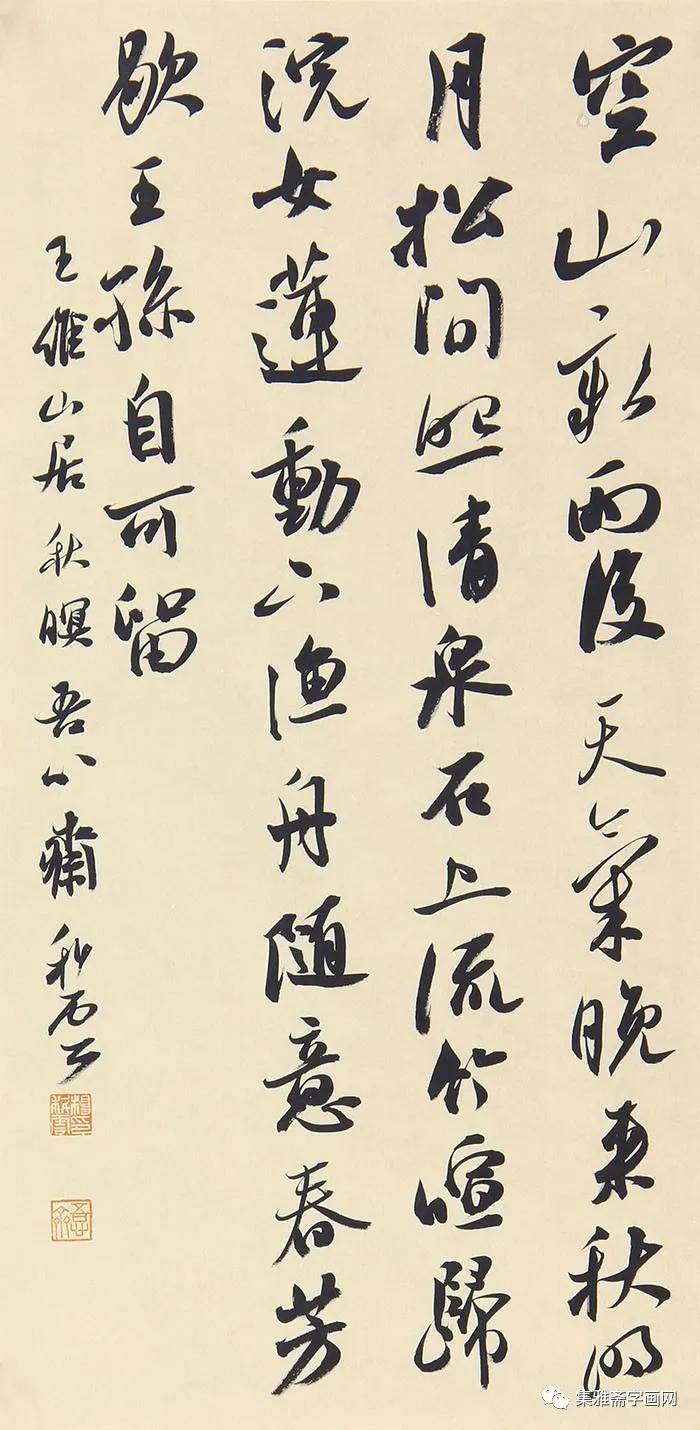 空山新雨後天氣晚来秋明
月松间照清泉石上流竹喧歸
浣女蓮動下渔舟随意春芳
歇王孫自可留
王維山居秋暝吾心斋
集雅斋字画网